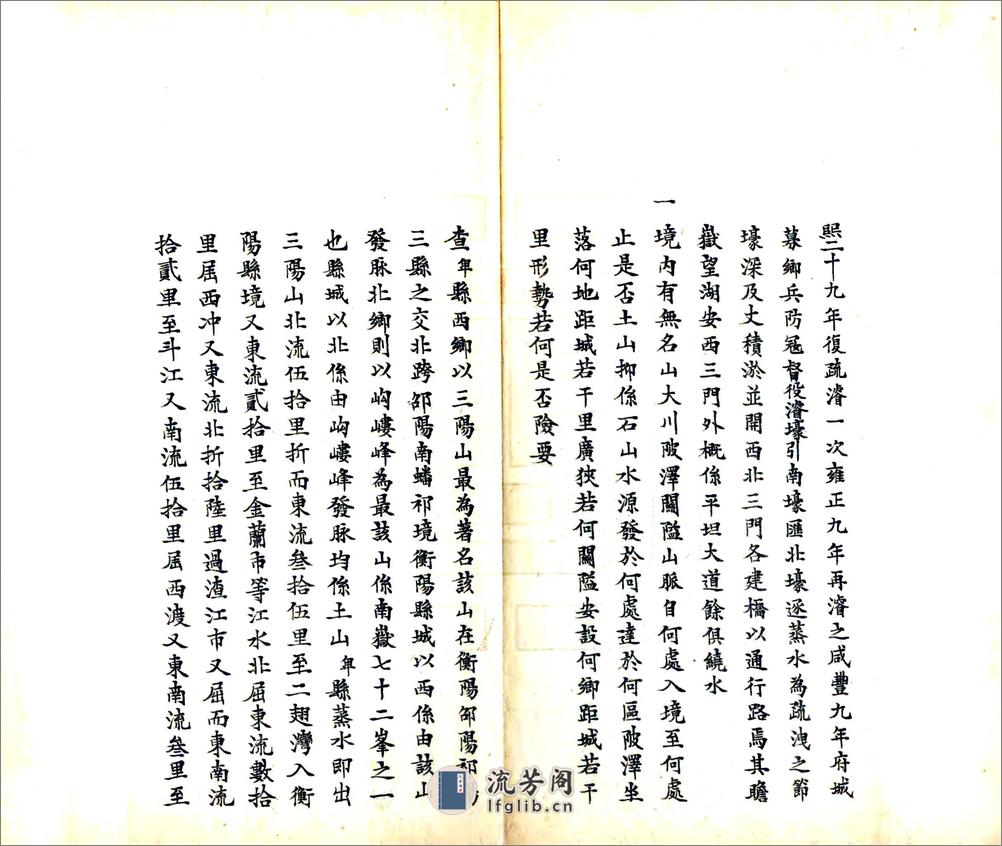 熙二十九年復疏濬一次雍正九年再濬之咸豐九年府城
募鄉兵防冦督役濬壕引南壕匯北壕逐蒸水為疏洩之節
壕深及丈積淤並開西北三門各建橋以通行路焉其瞻
嶽望湖安西三門外概係平坦大道餘俱繞水
一境內有無名山大川陂澤關隘山脈自何處入境至何處
止是否土山抑係石山水源發於何處達於何區陂澤坐
落何地距城若干里廣狹若何關隘安設何鄉距城若干
里形勢若何是否險要
查卑縣西鄉以三陽山最為著名該山在衡陽邵陽祁
三縣之交北跨邵陽南蟠祁境衡陽縣城以西係由該山
發脉北鄉則以岣嶁峰為最該山係南嶽七十二峯之一
也縣城以北係由岣嶁峰發脉均係土山卑縣蒸水即出
三陽山北流伍拾里折而東流叁拾伍里至二翅灣入衡
陽縣境又東流貳拾里至金蘭市等江水北屈東流數拾
里屈西冲又東流北折拾陸里過渣江市又屈而東南流
拾貳里至斗江又南流伍拾里屈西渡又東南流叁里至
流芳阁
lfglib.cn